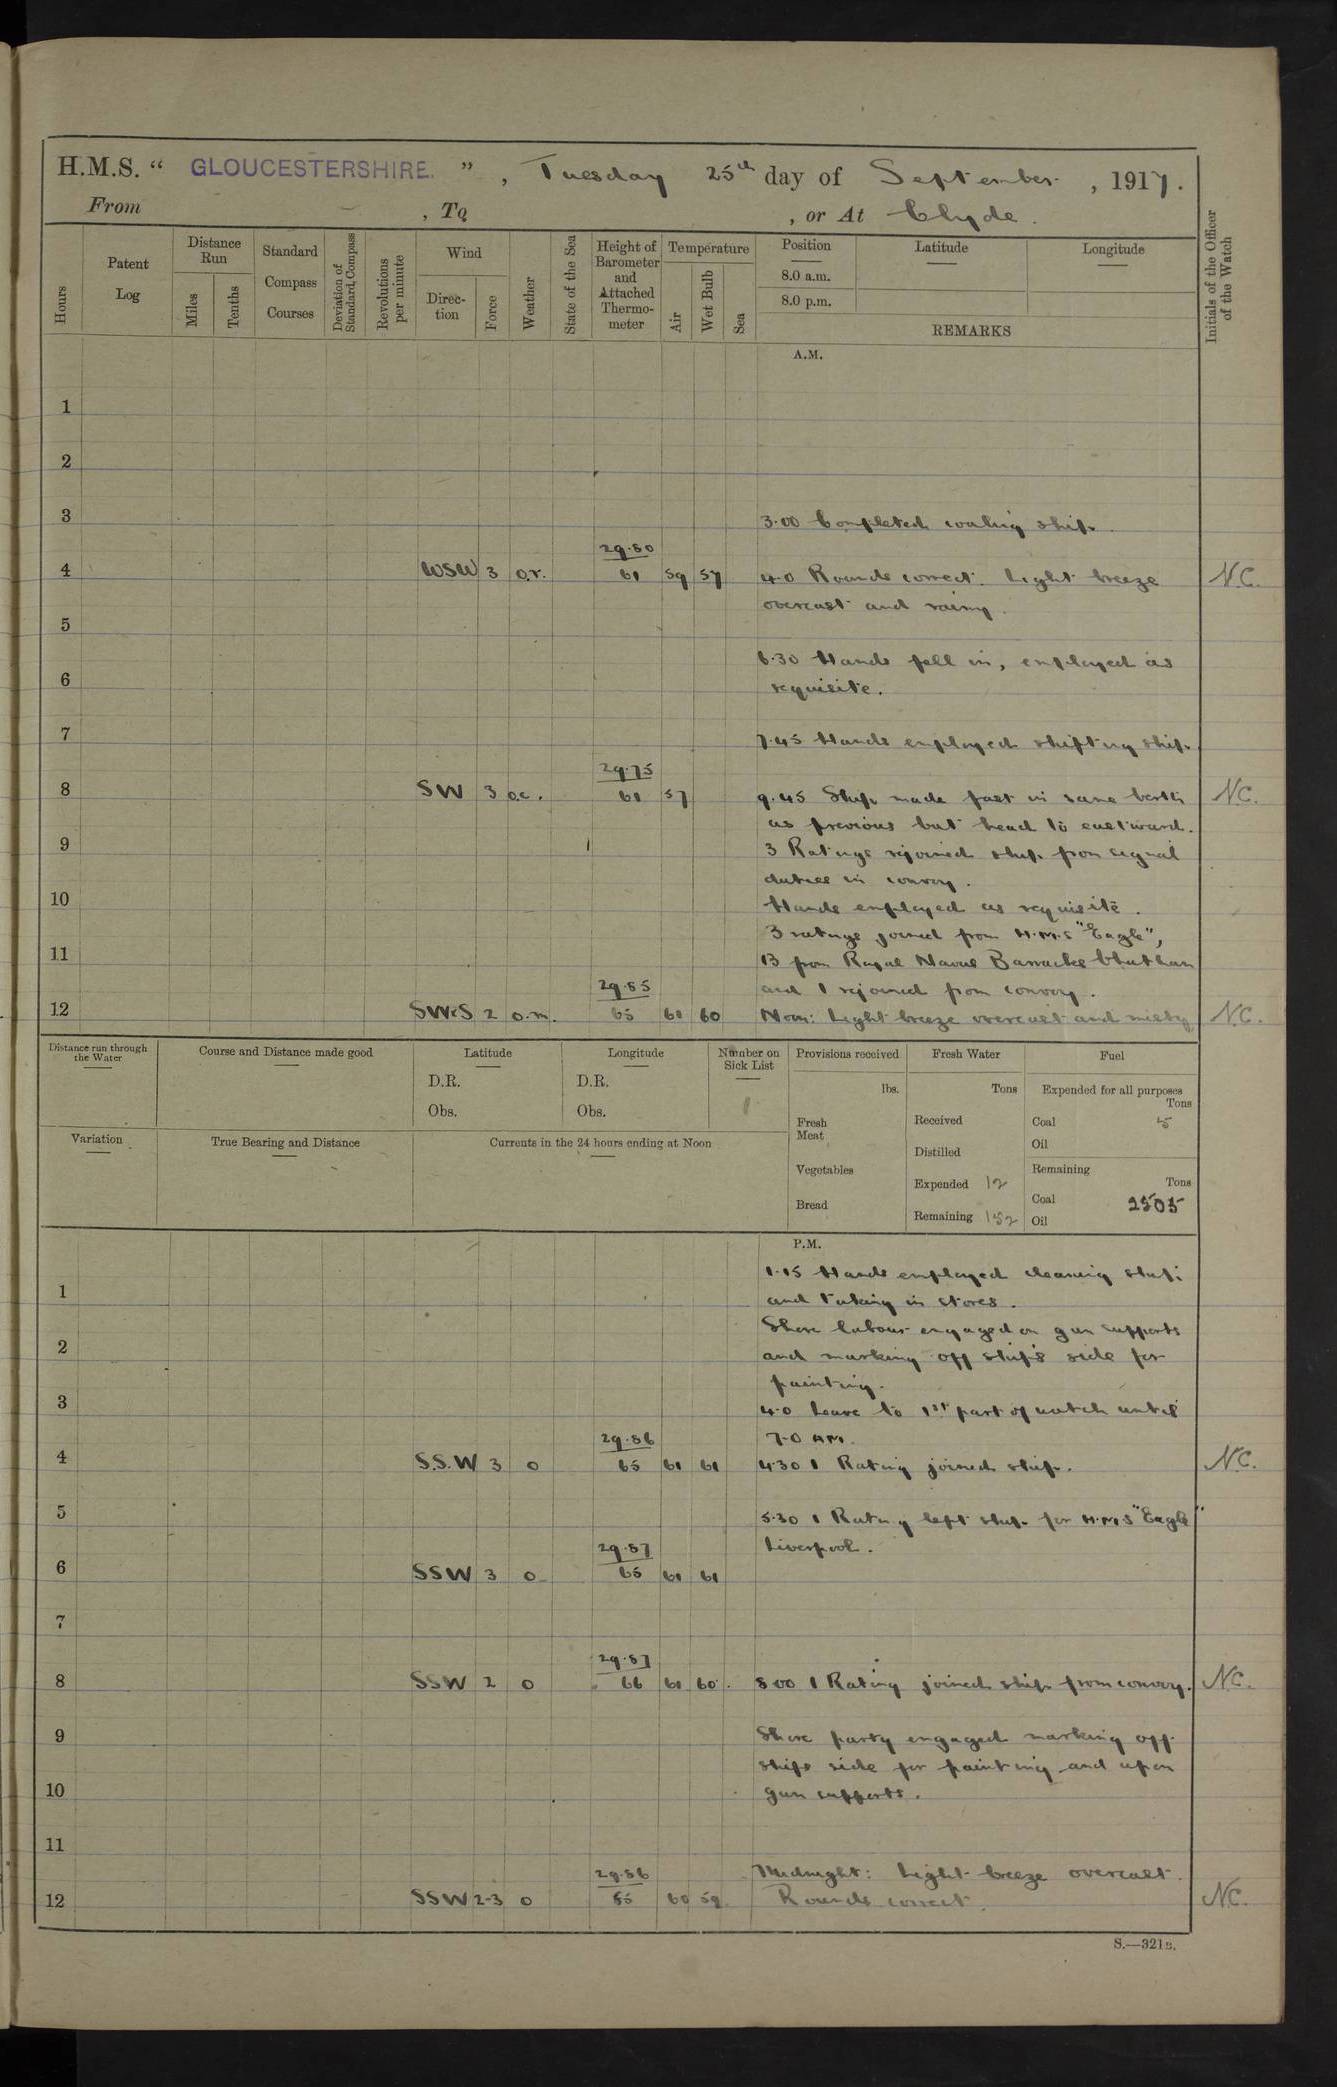 H.M.S. " GLOUCESTERSHIRE. ", Tuesday 25th day of September, 1917.
From , To , or At Clyde.
Hours
Patent Log
Distance Run
Miles
Tenths
Standard Compass Courses
Deviation of Standard Compass
Revolutions per minute
Wind
Direc-tion
Force
Weather
State of the Sea
Height of Barometer and Attached Thermo-meter
Temperature
Air
Wet Bulb
Sea
Position
8.0 a.m.
8.0 p.m.
Latitude
Longitude
REMARKS
Initials of the Officer of the Watch
A.M.
1
2
3 3.00 Completed coaling ship.
29.80
4 WSW 3 o.r. 61 59 57 4.0 Rounds correct. Light breeze N.C.
overcast and rainy.
5
6.30 Hands fell in, employed as
6 requisite.
7 7.45 Hands employed shifting ship.
29.75
8 SW 3 o.c. 61 57 9.45 Ship made fast in same berth N.C.
as previous but head to eastward.
9 3 Ratings rejoined ship from signal
duties in convoy.
10 Hands employed as requisite.
3 ratings joined from H.M.S "Eagle",
11 13 from Royal Naval Barracks Chatham
29.85 and 1 rejoined from convoy.
12 SW.S 2 o.m. 65 61 60 Noon: Light breeze overcast and misty N.C.
Distance run through the Water
Course and Distance made good
Latitude
D.R.
Obs.
Longitude
D.R.
Obs.
Number on Sick List
1
Provisions received
lbs.
Fresh Meat
Vegetables
Bread
Fresh Water
Tons
Received
Distilled
Expended 12
Remaining 152
Fuel
Expended for all purposes
Tons
Coal 5
Oil
Remaining
Tons
Coal 2505
Oil
Variation
True Bearing and Distance
Currents in the 24 hours ending at Noon
P.M.
1.15 Hands employed cleaning ship
1 and taking in stores.
Shore labour engaged on gun supports
2 and marking off ship's side for
painting.
3 4.0 Leave to 1st part of watch until
29.86 7.0 AM.
4 S.S.W 3 o 65 61 61 4.30 1 Rating joined ship. N.C.
5 5.30 1 Rating left ship for H.M.S "Eagle"
29.87 Liverpool.
6 SSW 3 o 65 61 61
7
29.87
8 SSW 2 o 66 61 60 8.00 1 Rating joined ship from convoy. N.C.
9 Shore party engaged marking off
ships side for painting and upon
10 gun supports.
11
29.86 Midnight: Light breeze overcast.
12 SSW 2-3 o 60 59 Rounds correct. N.C.
S.—321B.